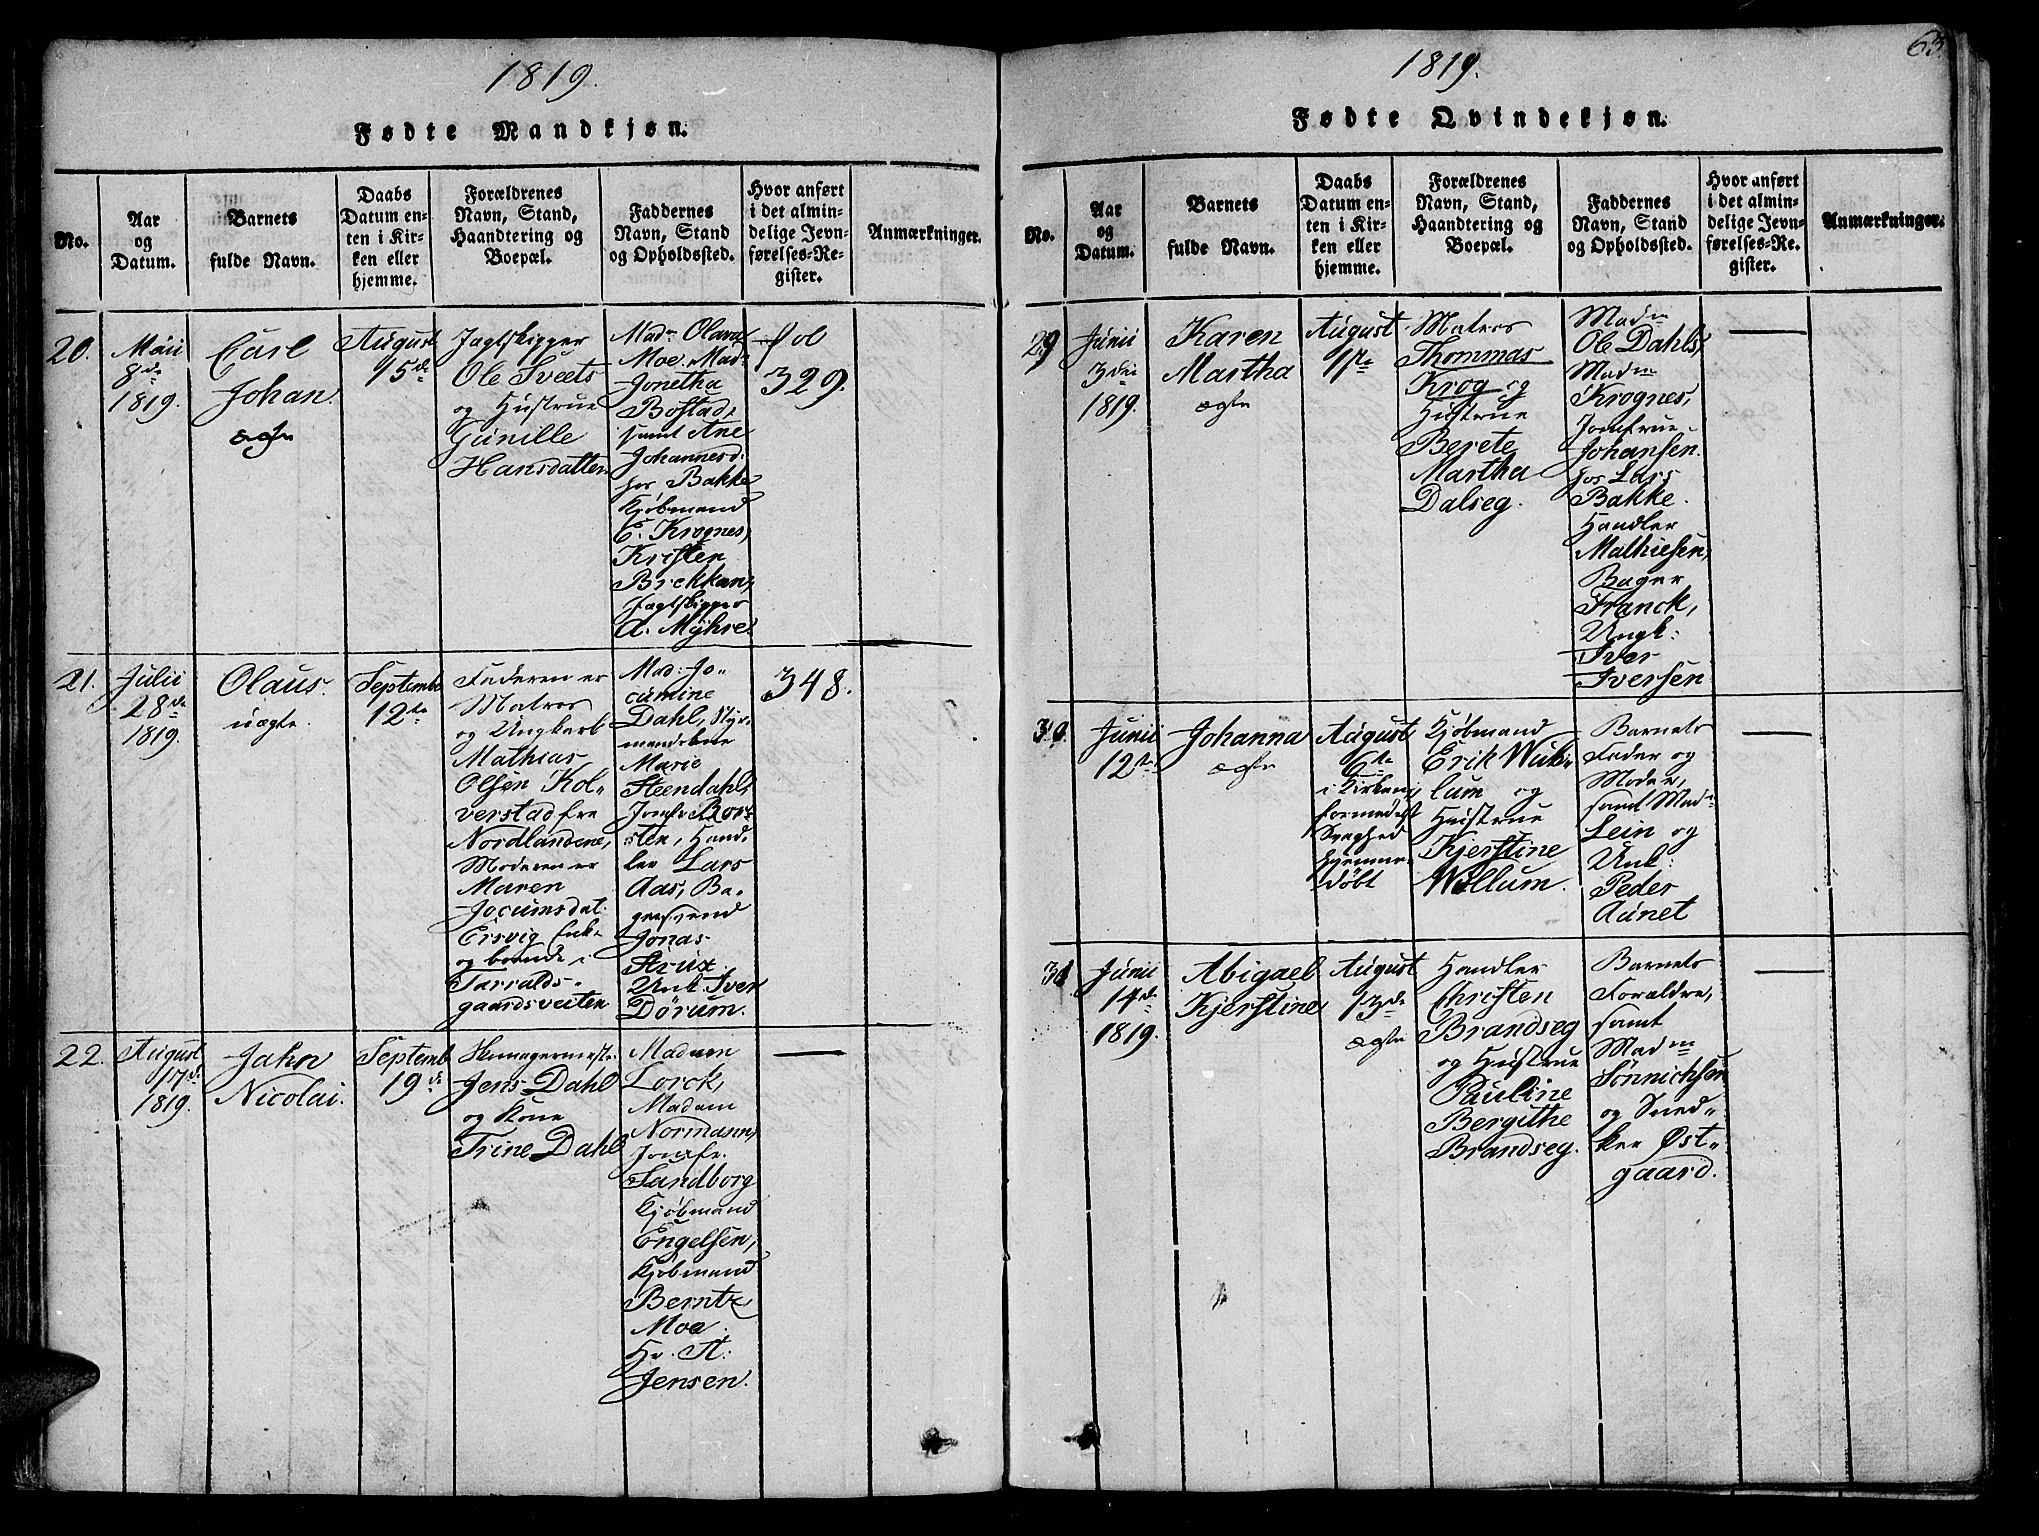 1819.
Fødte Mandkjøn.
No.
Aar
og
Datum.
Barnets
fulde Navn.
Daabs
Datum en-
ten i Kir-
ken eller
hjemme.
Forældrenes
Navn, Stand,
Haandtering og
Boepæl.
Faddernes
Navn, Stand
og Opholdssted.
Hvor anført
i det almin-
delige Jevn-
førelses-Re-
gister.
Anmærkninger.
20.
Maii
8de
1819.
Carl
Johan.
ægte
August
15de
Jagtskipper
Ole Sveets
og Hustrue
Gunille
Hansdatter
Mad. Olava
Moe. Mad.
Jonetha
Bostad,
samt Ane
Johannesd:
hos Bakke
Kjøbmand
E. Krognes,
Kristen
Brekkan,
Jagtskipper
A. Myhre.
Fol
329.
21.
Julii
28de
1819.
Olaus.
uægte.
Septembr
12te
Faderen er
Matros
og Ungkarl
Mathias
Olsen Kol-
verstad fra
Nordlandene,
Moderen er
Maren
Jocumsdat.
Ersvig Enke
og boende i
Tarralds-
gaardsveiten
Mad: Jo-
cumine
Dahl, Styr-
mandskone
Marie
Steendahl,
Jomfr Bor-
sten, Hand-
ler Lars
Aas, Ba-
gersvend
Jonas
Strux
Unk. Iver
Dørum.
348.
22.
August
17de
1819.
Jahn
Nicolai.
Septemb
19de
Skomagermest.
Jens Dahl
og Kone
Trine Dahl
Madam
Lorck,
Madam
Normann,
Jomfr.
Sandborg
Kjøbmand
Engelsen,
Kjøbmand
Berntz
Moe.
Hr. A:
Jensen.
63
1819.
Fødte Qvindekjøn.
No.
Aar
og
Datum.
Barnets
fulde Navn.
Daabs
Datum en-
ten i Kir-
ken eller
hjemme.
Forældrenes
Navn, Stand,
Haandtering og
Boepæl.
Faddernes
Navn, Stand
og Opholdssted.
Hvor anført
i det almin-
delige Jevn-
førelses-Re-
gister.
Anmærkninger.
29
Junii
3die
1819.
Karen
Martha
ægte
August
1ste
Matros
Thommas
Krog og
Hustrue
Berete
Martha
Dalseg.
Madm
Ole Dahls,
Madm
Krognes,
Jomfrue
Johansen
hos Lars
Bakke.
Handler
Mathiesen,
Bager
Franck,
Ungk:
Iver
Iversen
30.
Junii
12te
Johanna
ægte
August
6te
i Kirken,
formedelst
Svaghed
hjemme-
døbt
Kjøbmand
Erik Wul-
lum og
Hustrue
Kjerstine
Wollum.
Barnets
Fader og
Moder,
samt Mad.
Lein og
Unk:
Peder
Aunet
31
Junii
14de
1819.
Abigael
Kjerstine
August
13de
ægte
Handler
Christen
Brandseg
og Hustrue
Pauline
Bergithe
Brandseg.
Barnets
Forældre,
samt
Madm
Sønnichsen
og Sned-
ker Øst-
gaard.